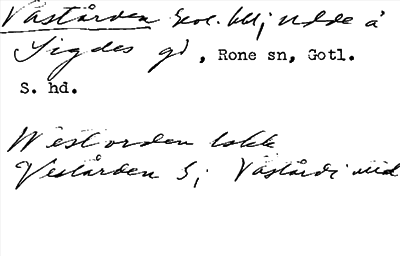 Västården Geol. bl; udde å
Sigdes gd, Rone sn, Gotl.
S. hd.
Westorden
Vestården S; Västårde vid